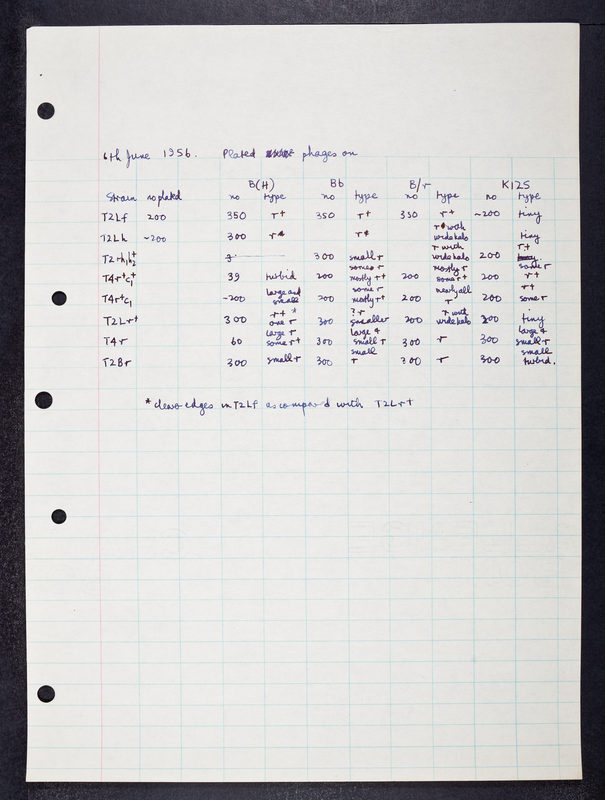 6th June 1956. Plated phages on
B(H) Bb B/r K12S
Strain no plated no type no type no type no type
T2Lf 200 350 r+ 350 r+ 350 r+ ~200 tiny
T2Lh ~200 300 r* r* r* with wide halo tiny
T2rh1h2+ 300 small r r with wide halo 200 r+
T4r+c1+ 39 turbid 200 some r mostly r+ 200 mostly r some r+ 200 some r r+
T4r+c1 ~200 large and small 200 some r mostly r+ 200 nearly all r 200 r+ some r
T2Lr+ 300 r+ * one r 300 ? r smaller 200 r with wide halo 200 tiny
T4r 60 large r some r+ 300 large & small r 300 r 300 large & small r
T2Br 300 small r 300 small r 300 r 300 small turbid.
* edges in T2Lf as compared with T2Lr+